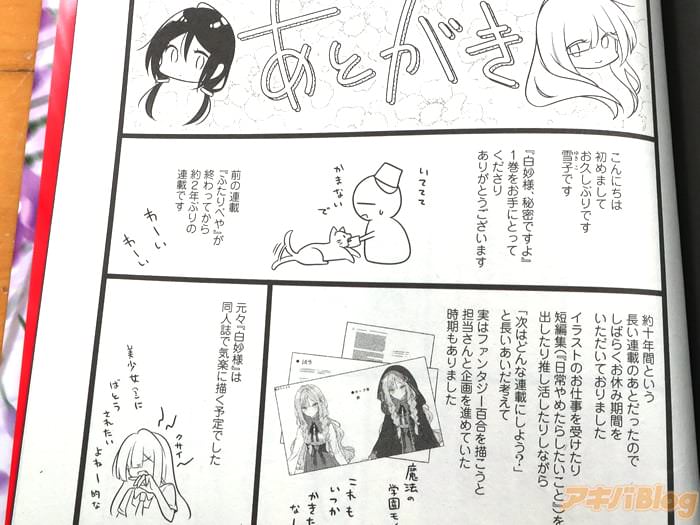 あとがき
こんにちは
初めまして
お久しぶりです
雪子です
『白妙様、秘密ですよ』
1巻をお手にとって
くださり
ありがとうございます
いててて
かまない
で
前の連載
『ふたりべや』が
終わってから
約2年ぶりの
連載です
わーい
わーい
約十年間という
長い連載のあとだったので
しばらくお休み期間を
いただいておりました
イラストのお仕事を受けたり
短編集(『日常やめたらしたいこと』)を
出したり推し活したりしながら
「次はどんな連載にしよう?」
と長いあいだ考えて
実はファンタジー百合を描こうと
担当さんと企画を進めていた
時期もありました
魔法の
学園モ
これも
いつか
かきた
なー
元々『白妙様』は
同人誌で気楽に描く予定でした
美少女(?)に
ばとう
されたい
よねー的な
クサイ
アキバBlog